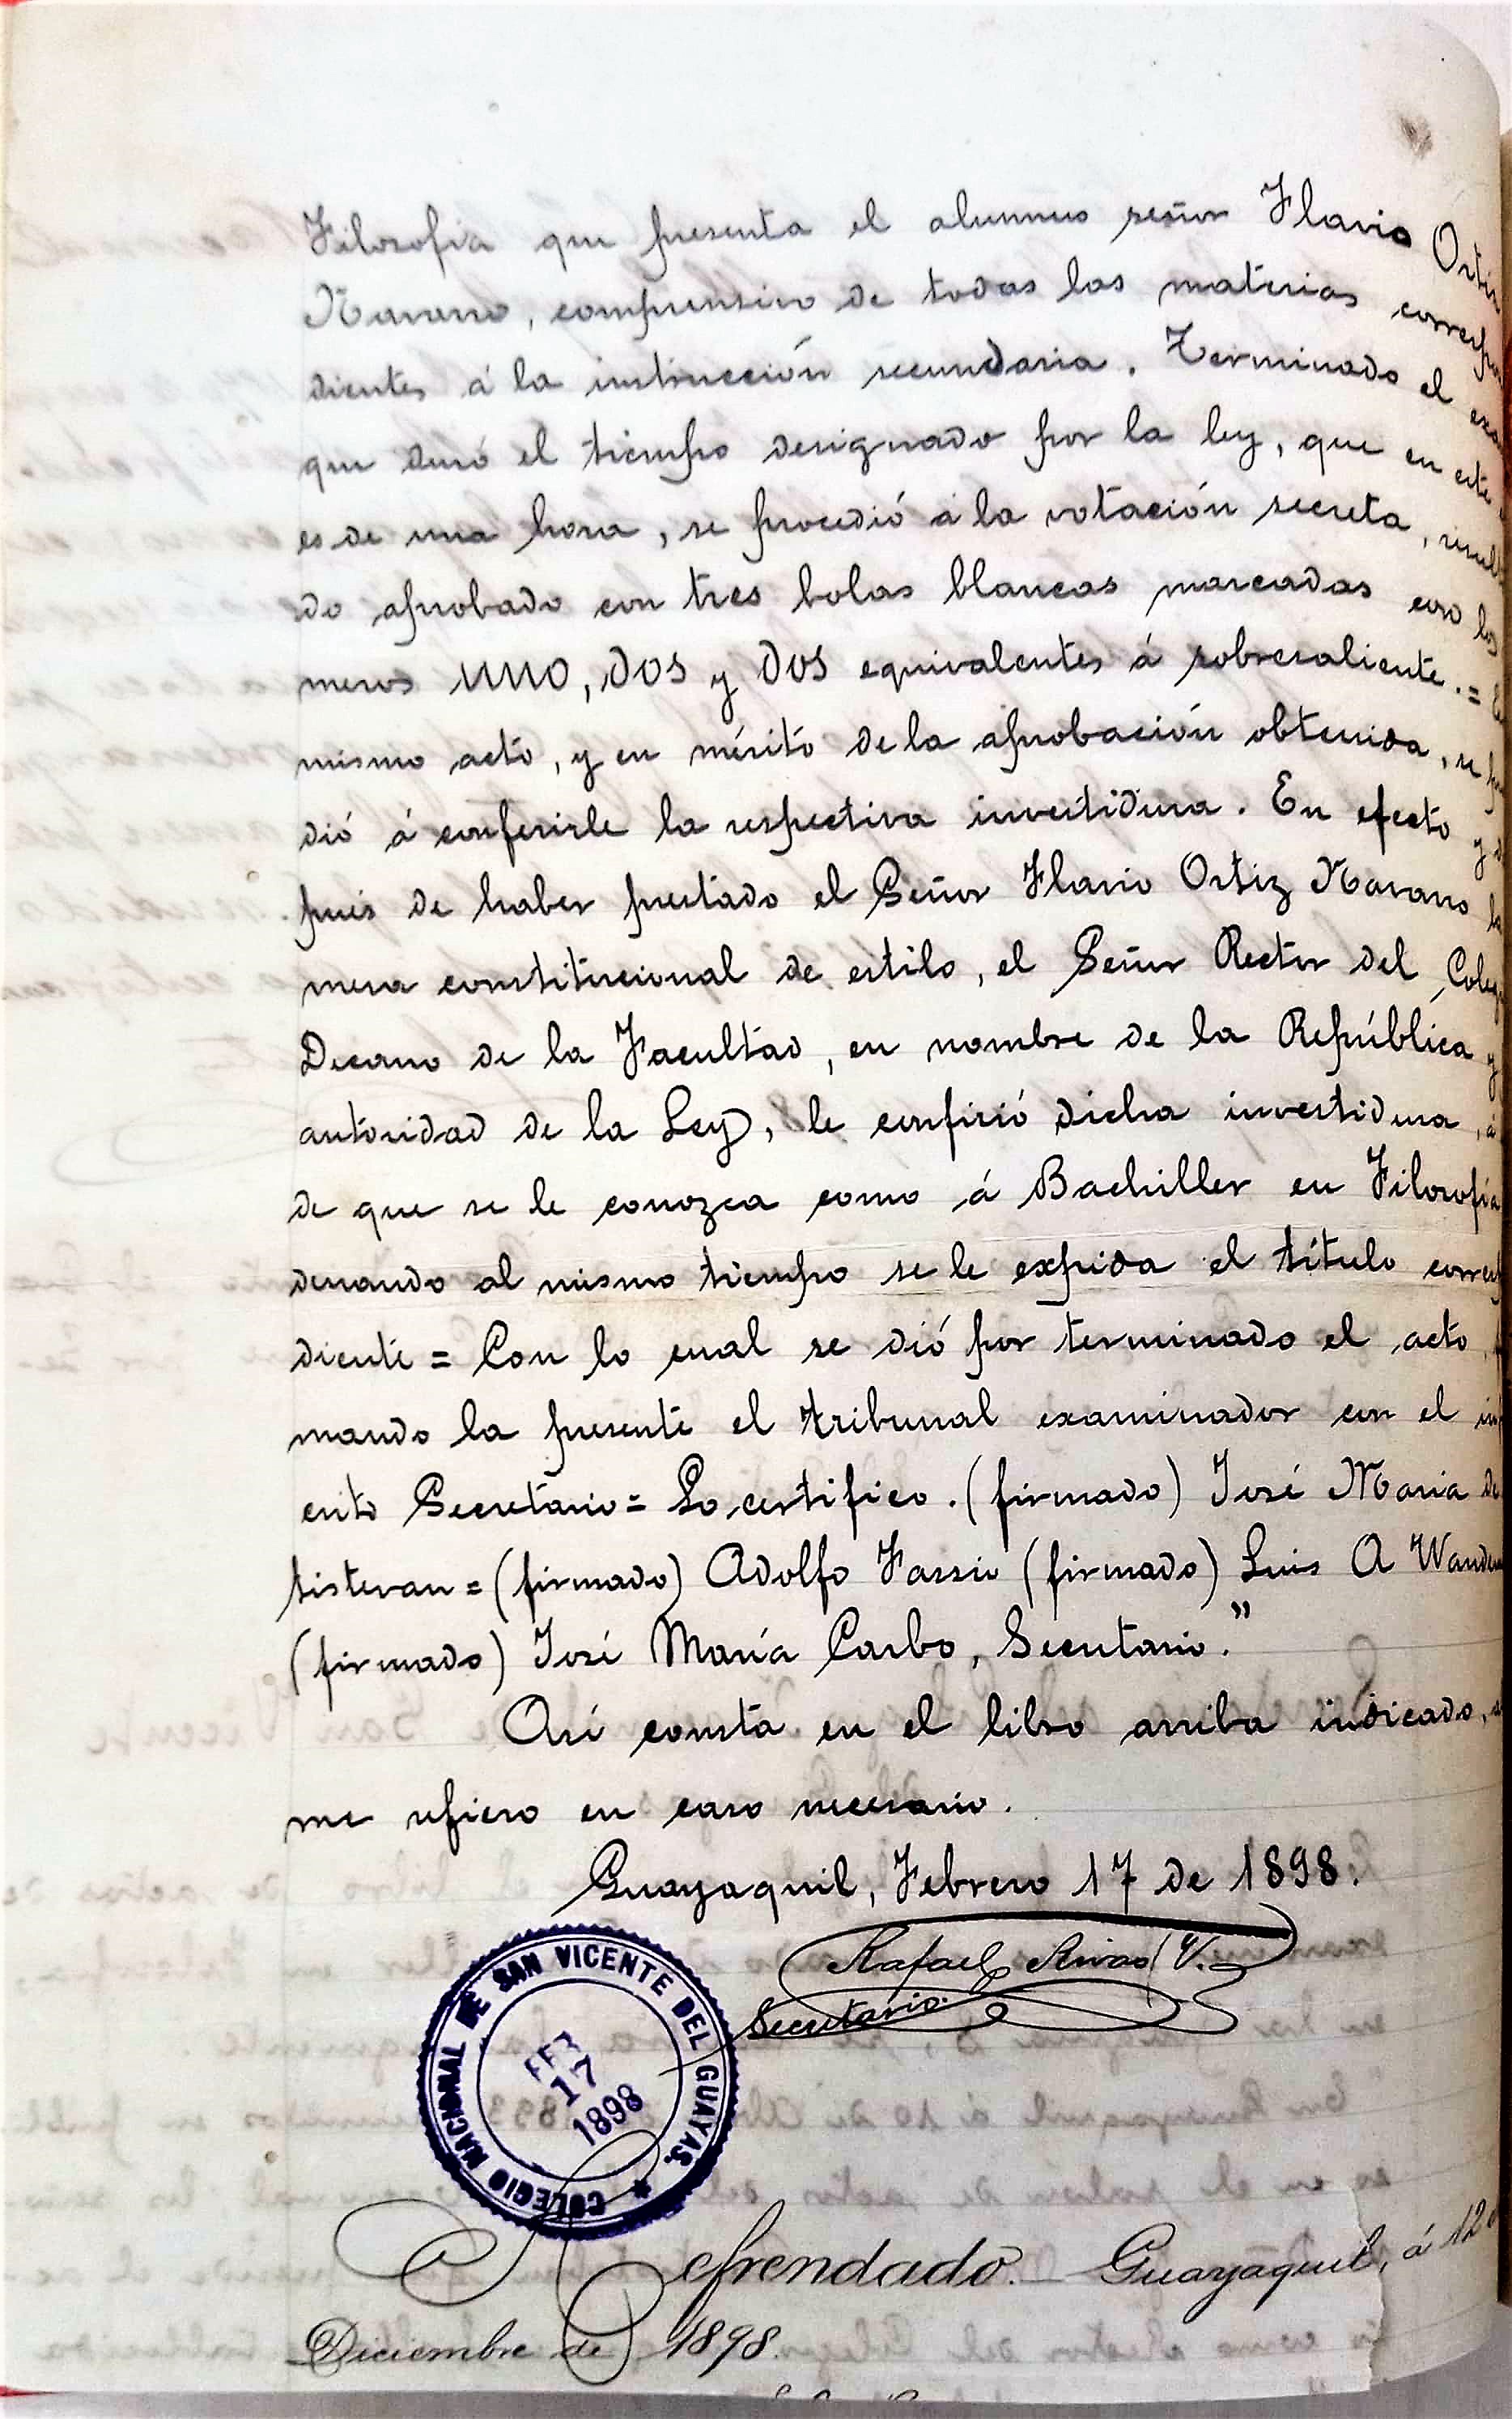 Filosofía que presenta el alumno señor Flavio Ortiz
Navarro, comprensivo de todas las materias correspon
dientes á la instrucción secundaria. Terminado el exa
que duró el tiempo designado por la ley, que en este
es de una hora, se procedió á la votación secreta, resul
do aprobado con tres bolas blancas marcadas con los
meros UNO, DOS y DOS equivalentes á sobresaliente. =
mismo acto, y en mérito de la aprobación obtenida, se
dió á conferirle la respectiva investidura. En efecto y
pués de haber prestado el Señor Flavio Ortiz Navarro
mesa constitucional de estilo, el Señor Rector del Coleg
Decano de la Facultad, en nombre de la República y
autoridad de la Ley, le confirió dicha investidura,
de que se le conozca como á Bachiller en Filosofía
denando al mismo tiempo se le expida el título corresp
diente = Con lo cual se dió por terminado el acto
mando la presente el tribunal examinador con el
crito Secretario = Lo certifico. (firmado) José María de
tistevan = (firmado) Adolfo Fassio (firmado) Luis A Wande
(firmado) José María Carbo, Secretario."
Así consta en el libro arriba indicado,
me refiero en caso necesario.
Guayaquil, Febrero 17 de 1898.
Rafael Rivas V.
Secretario.
COLEGIO NACIONAL DE SAN VICENTE DEL GUAYAS.
FEB
17
1898
Refrendado. Guayaquil, á 12
Diciembre de 1898.